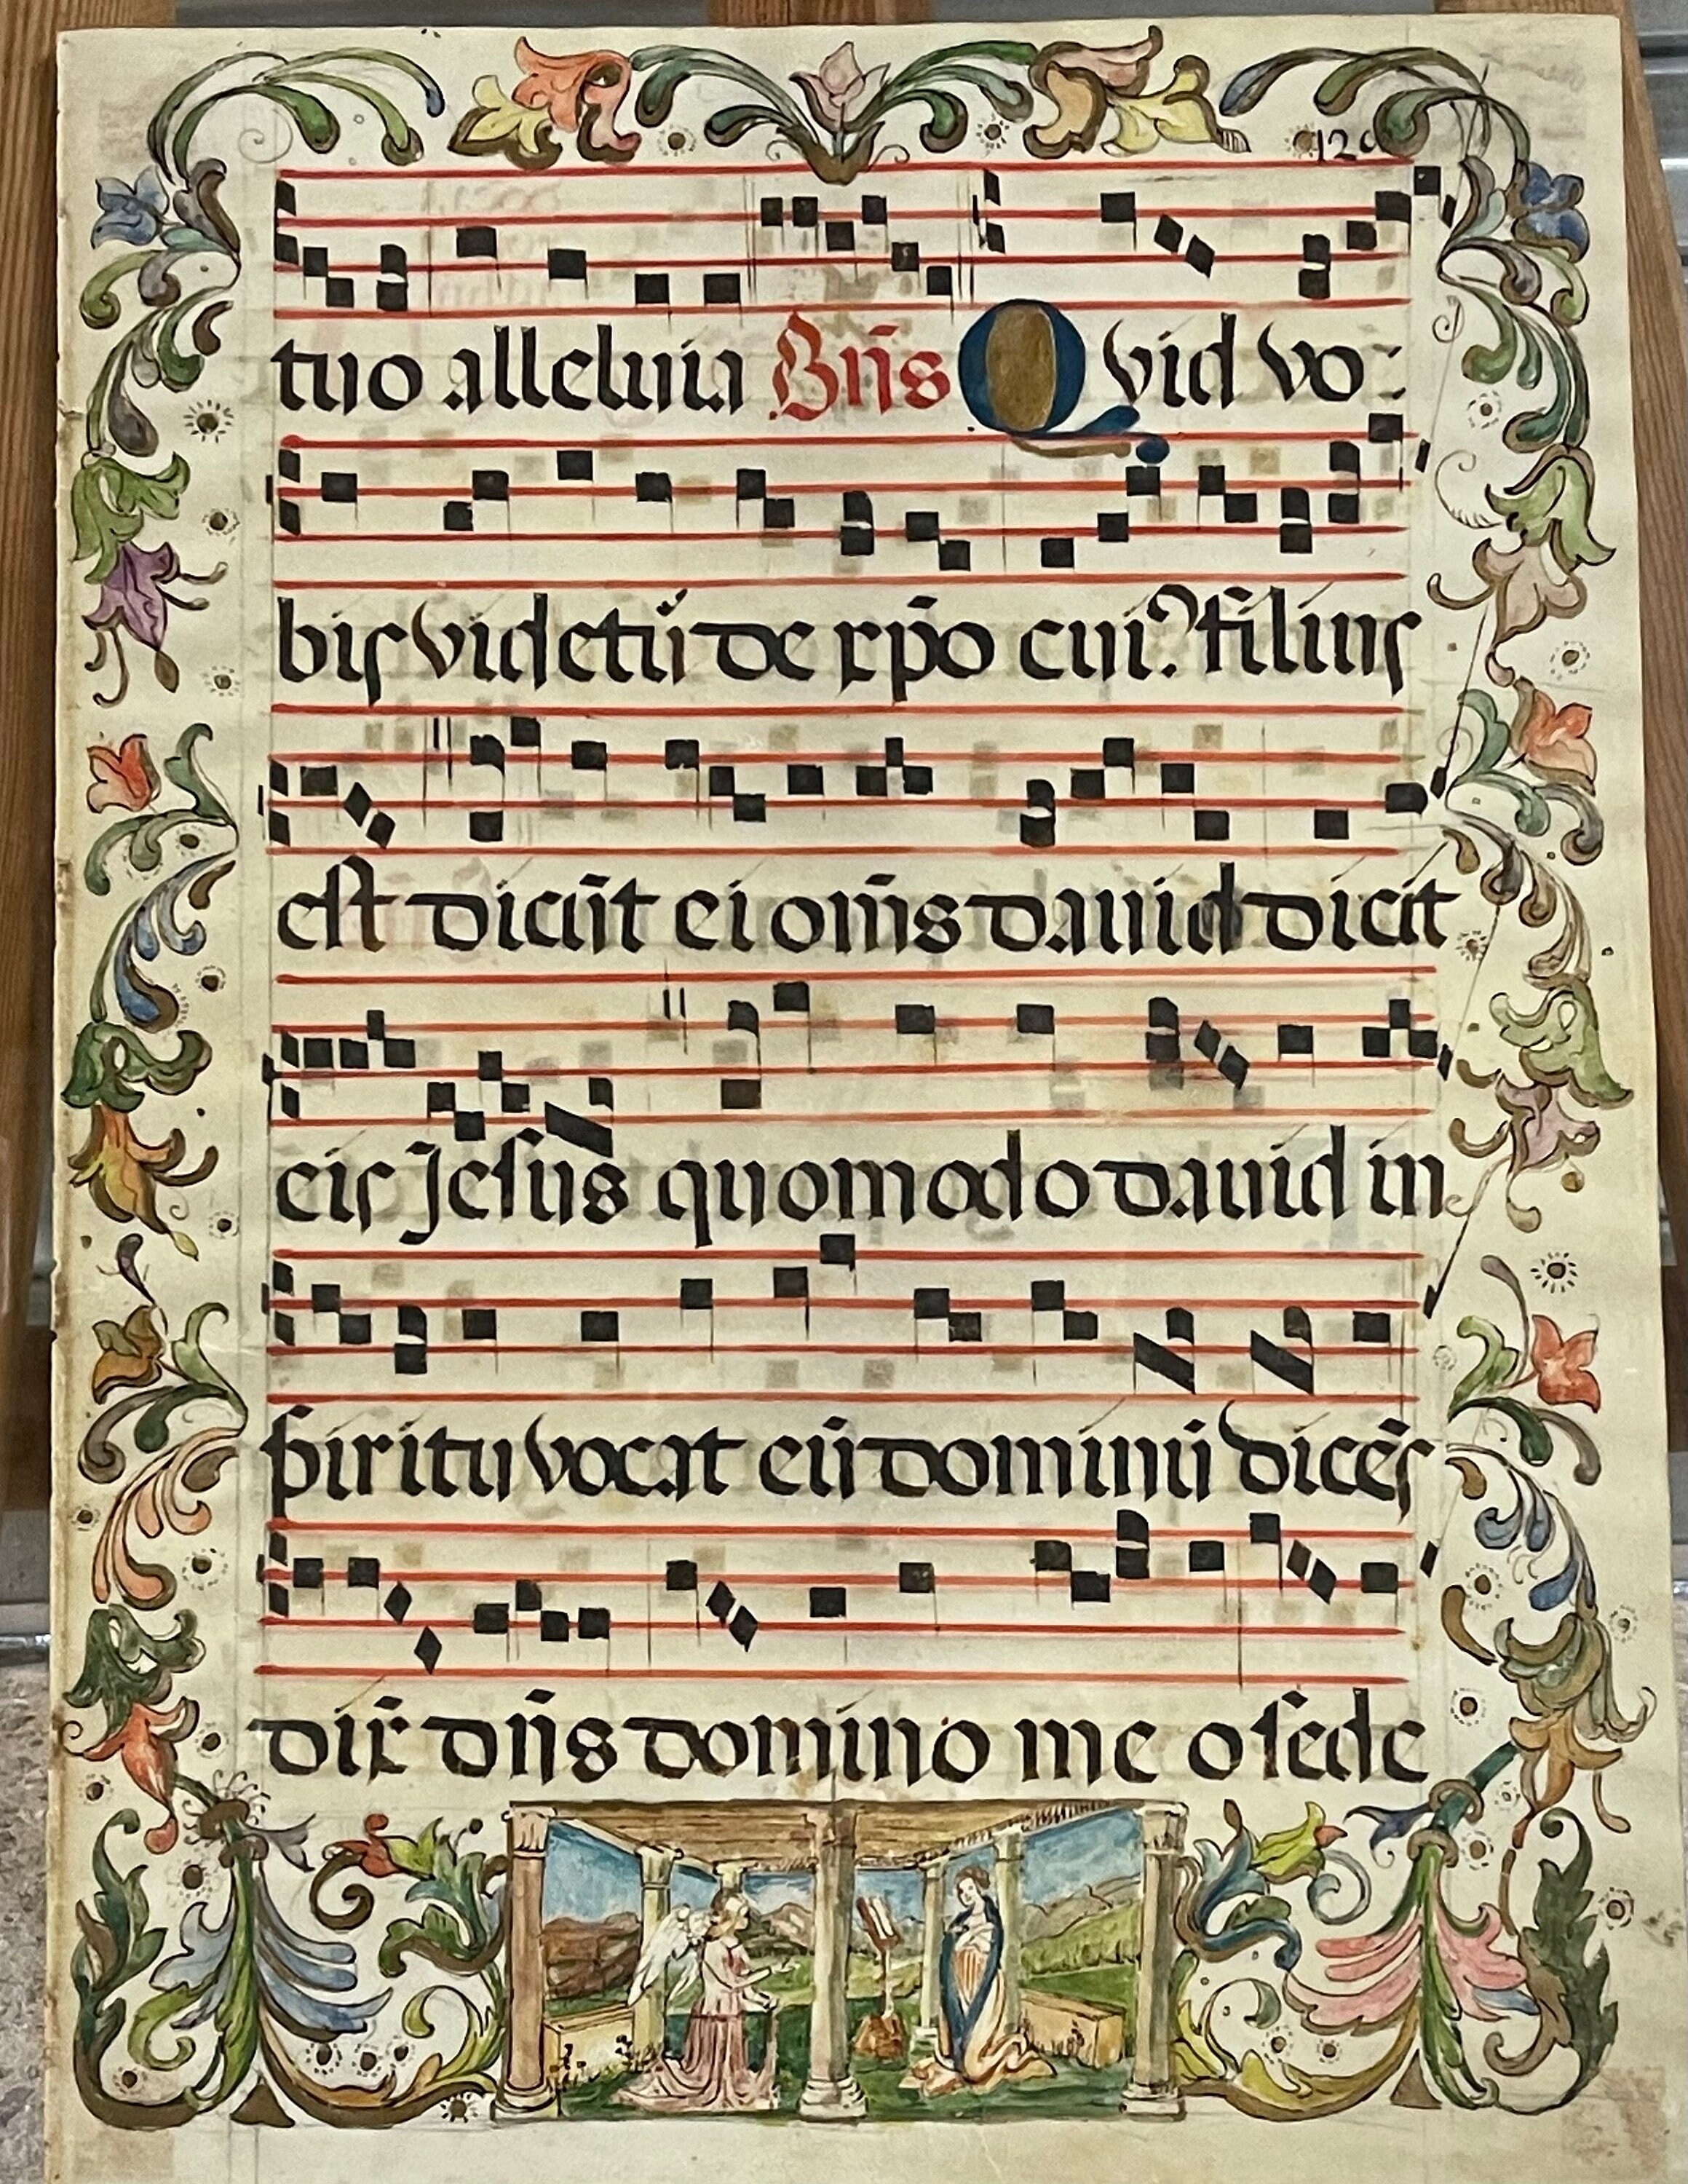 129
tuo alleluia Bn̄s Quid vo
bis videtur̄ de xp̄o cui? filius
est dicūt ei om̄s dauid dicit
eis Jesus quomodo dauid in
spiritu vocat eū dominū dicēs
dix̄ dn̄s domino meo sede